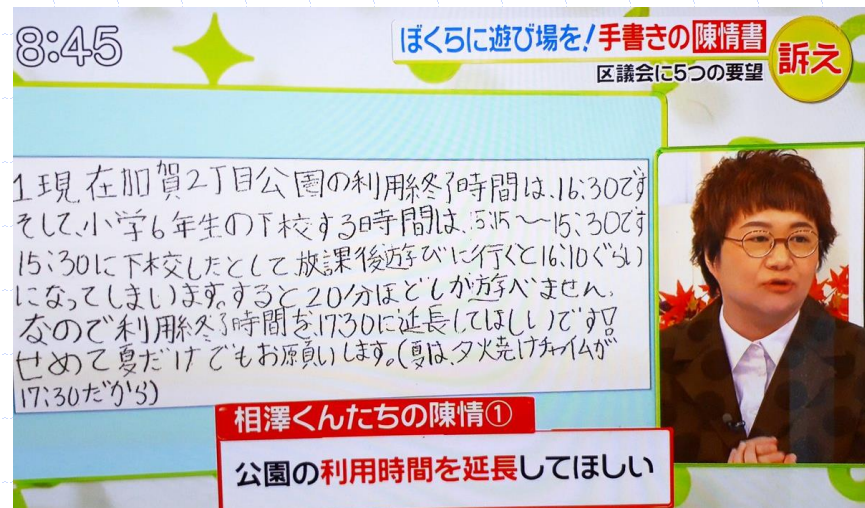 8:45
ぼくらに遊び場を!手書きの陳情書
区議会に5つの要望
訴え
1現在加賀2丁目公園の利用終了時間は、16:30です
そして、小学6年生の下校する時間は、15:15〜15:30です
15:30に下校したとして放課後遊びに行くと16:10ぐらい
になってしまいます。すると20分ほどしか遊べません。
なので利用終了時間を17:30に延長してほしいです!
せめて夏だけでもお願いします。(夏は、夕火焼けチャイムが
17:30だから)
相澤くんたちの陳情①
公園の利用時間を延長してほしい